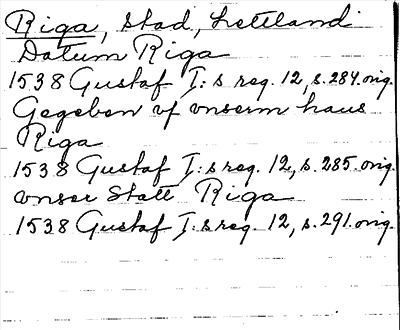 Riga, stad, Lettland
Datum Riga
1538 Gustaf I:s reg. 12, s. 284. orig.
Gegeben vf vnserm haus
Riga
1538 Gustaf I:s reg. 12, s. 285. orig.
vnser Statt Riga
1538 Gustaf I:s reg. 12, s. 291. orig.